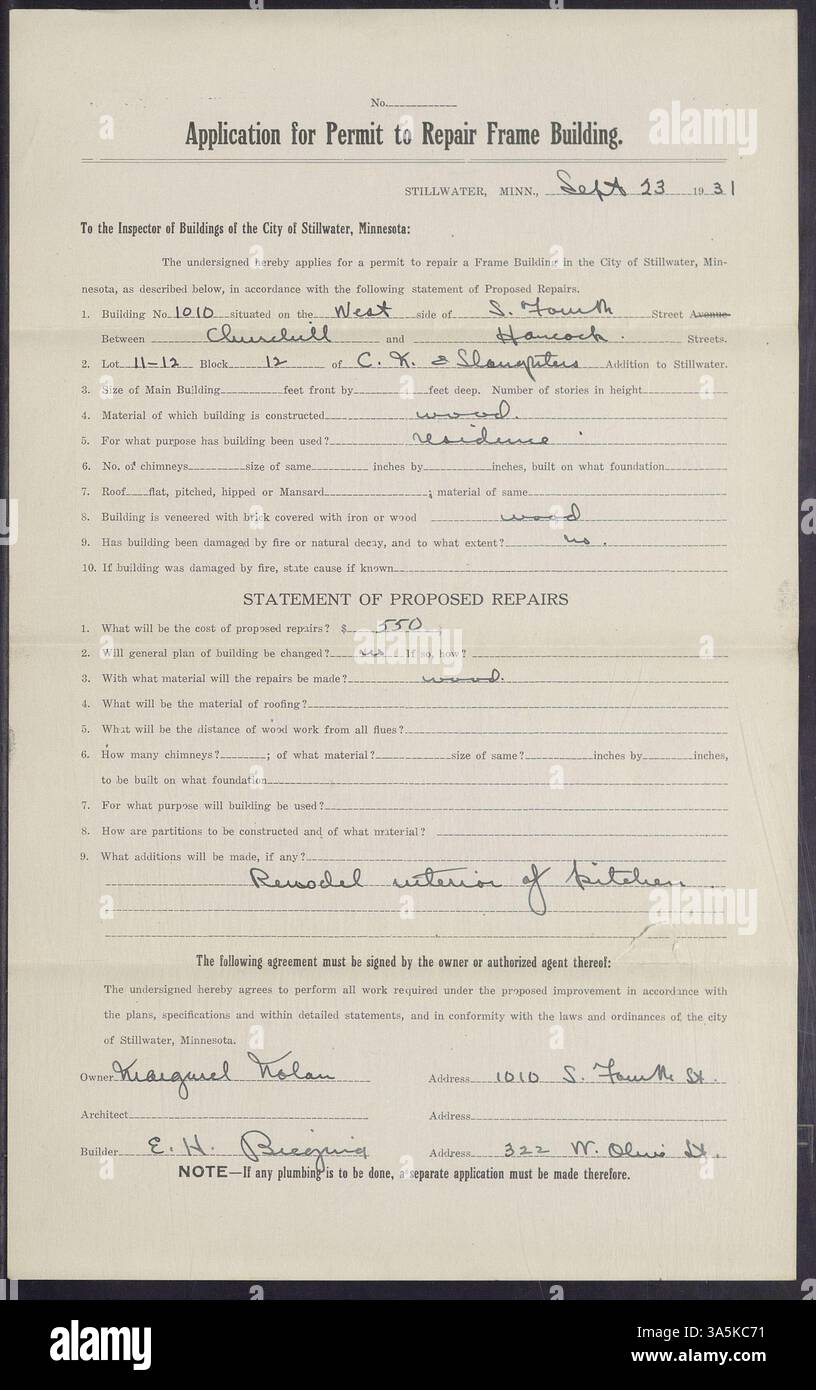 No.
Application for Permit to Repair Frame Building.
STILLWATER, MINN., Sept 23 1931
To the Inspector of Buildings of the City of Stillwater, Minnesota:
The undersigned hereby applies for a permit to repair a Frame Building in the City of Stillwater, Min-
nesota, as described below, in accordance with the following statement of Proposed Repairs.
1. Building No. 1010 situated on the West side of S. Fourth Street Avenue
Between Churchill and Hancock. Streets.
2. Lot 11-12 Block 12 of C. K. & Slaughters Addition to Stillwater.
3. Size of Main Building feet front by feet deep. Number of stories in height
4. Material of which building is constructed wood.
5. For what purpose has building been used? residence
6. No. of chimneys size of same inches by inches, built on what foundation
7. Roof flat, pitched, hipped or Mansard ; material of same
8. Building is veneered with brick covered with iron or wood wood
9. Has building been damaged by fire or natural decay, and to what extent? no.
10. If building was damaged by fire, state cause if known
STATEMENT OF PROPOSED REPAIRS
1. What will be the cost of proposed repairs? $ 550
2. Will general plan of building be changed? no If so, how?
3. With what material will the repairs be made? wood.
4. What will be the material of roofing?
5. What will be the distance of wood work from all flues?
6. How many chimneys? ; of what material? size of same? inches by inches,
to be built on what foundation
7. For what purpose will building be used?
8. How are partitions to be constructed and of what material?
9. What additions will be made, if any?
Remodel interior of kitchen.
The following agreement must be signed by the owner or authorized agent thereof:
The undersigned hereby agrees to perform all work required under the proposed improvement in accordance with
the plans, specifications and within detailed statements, and in conformity with the laws and ordinances of the city
of Stillwater, Minnesota.
Owner Margaret Nolan Address 1010 S. Fourth St.
Architect Address
Builder E. H. Address 322 W. Olive St.
NOTE—If any plumbing is to be done, a separate application must be made therefore.
alamy
Image ID: 3A5KC71
www.alamy.com